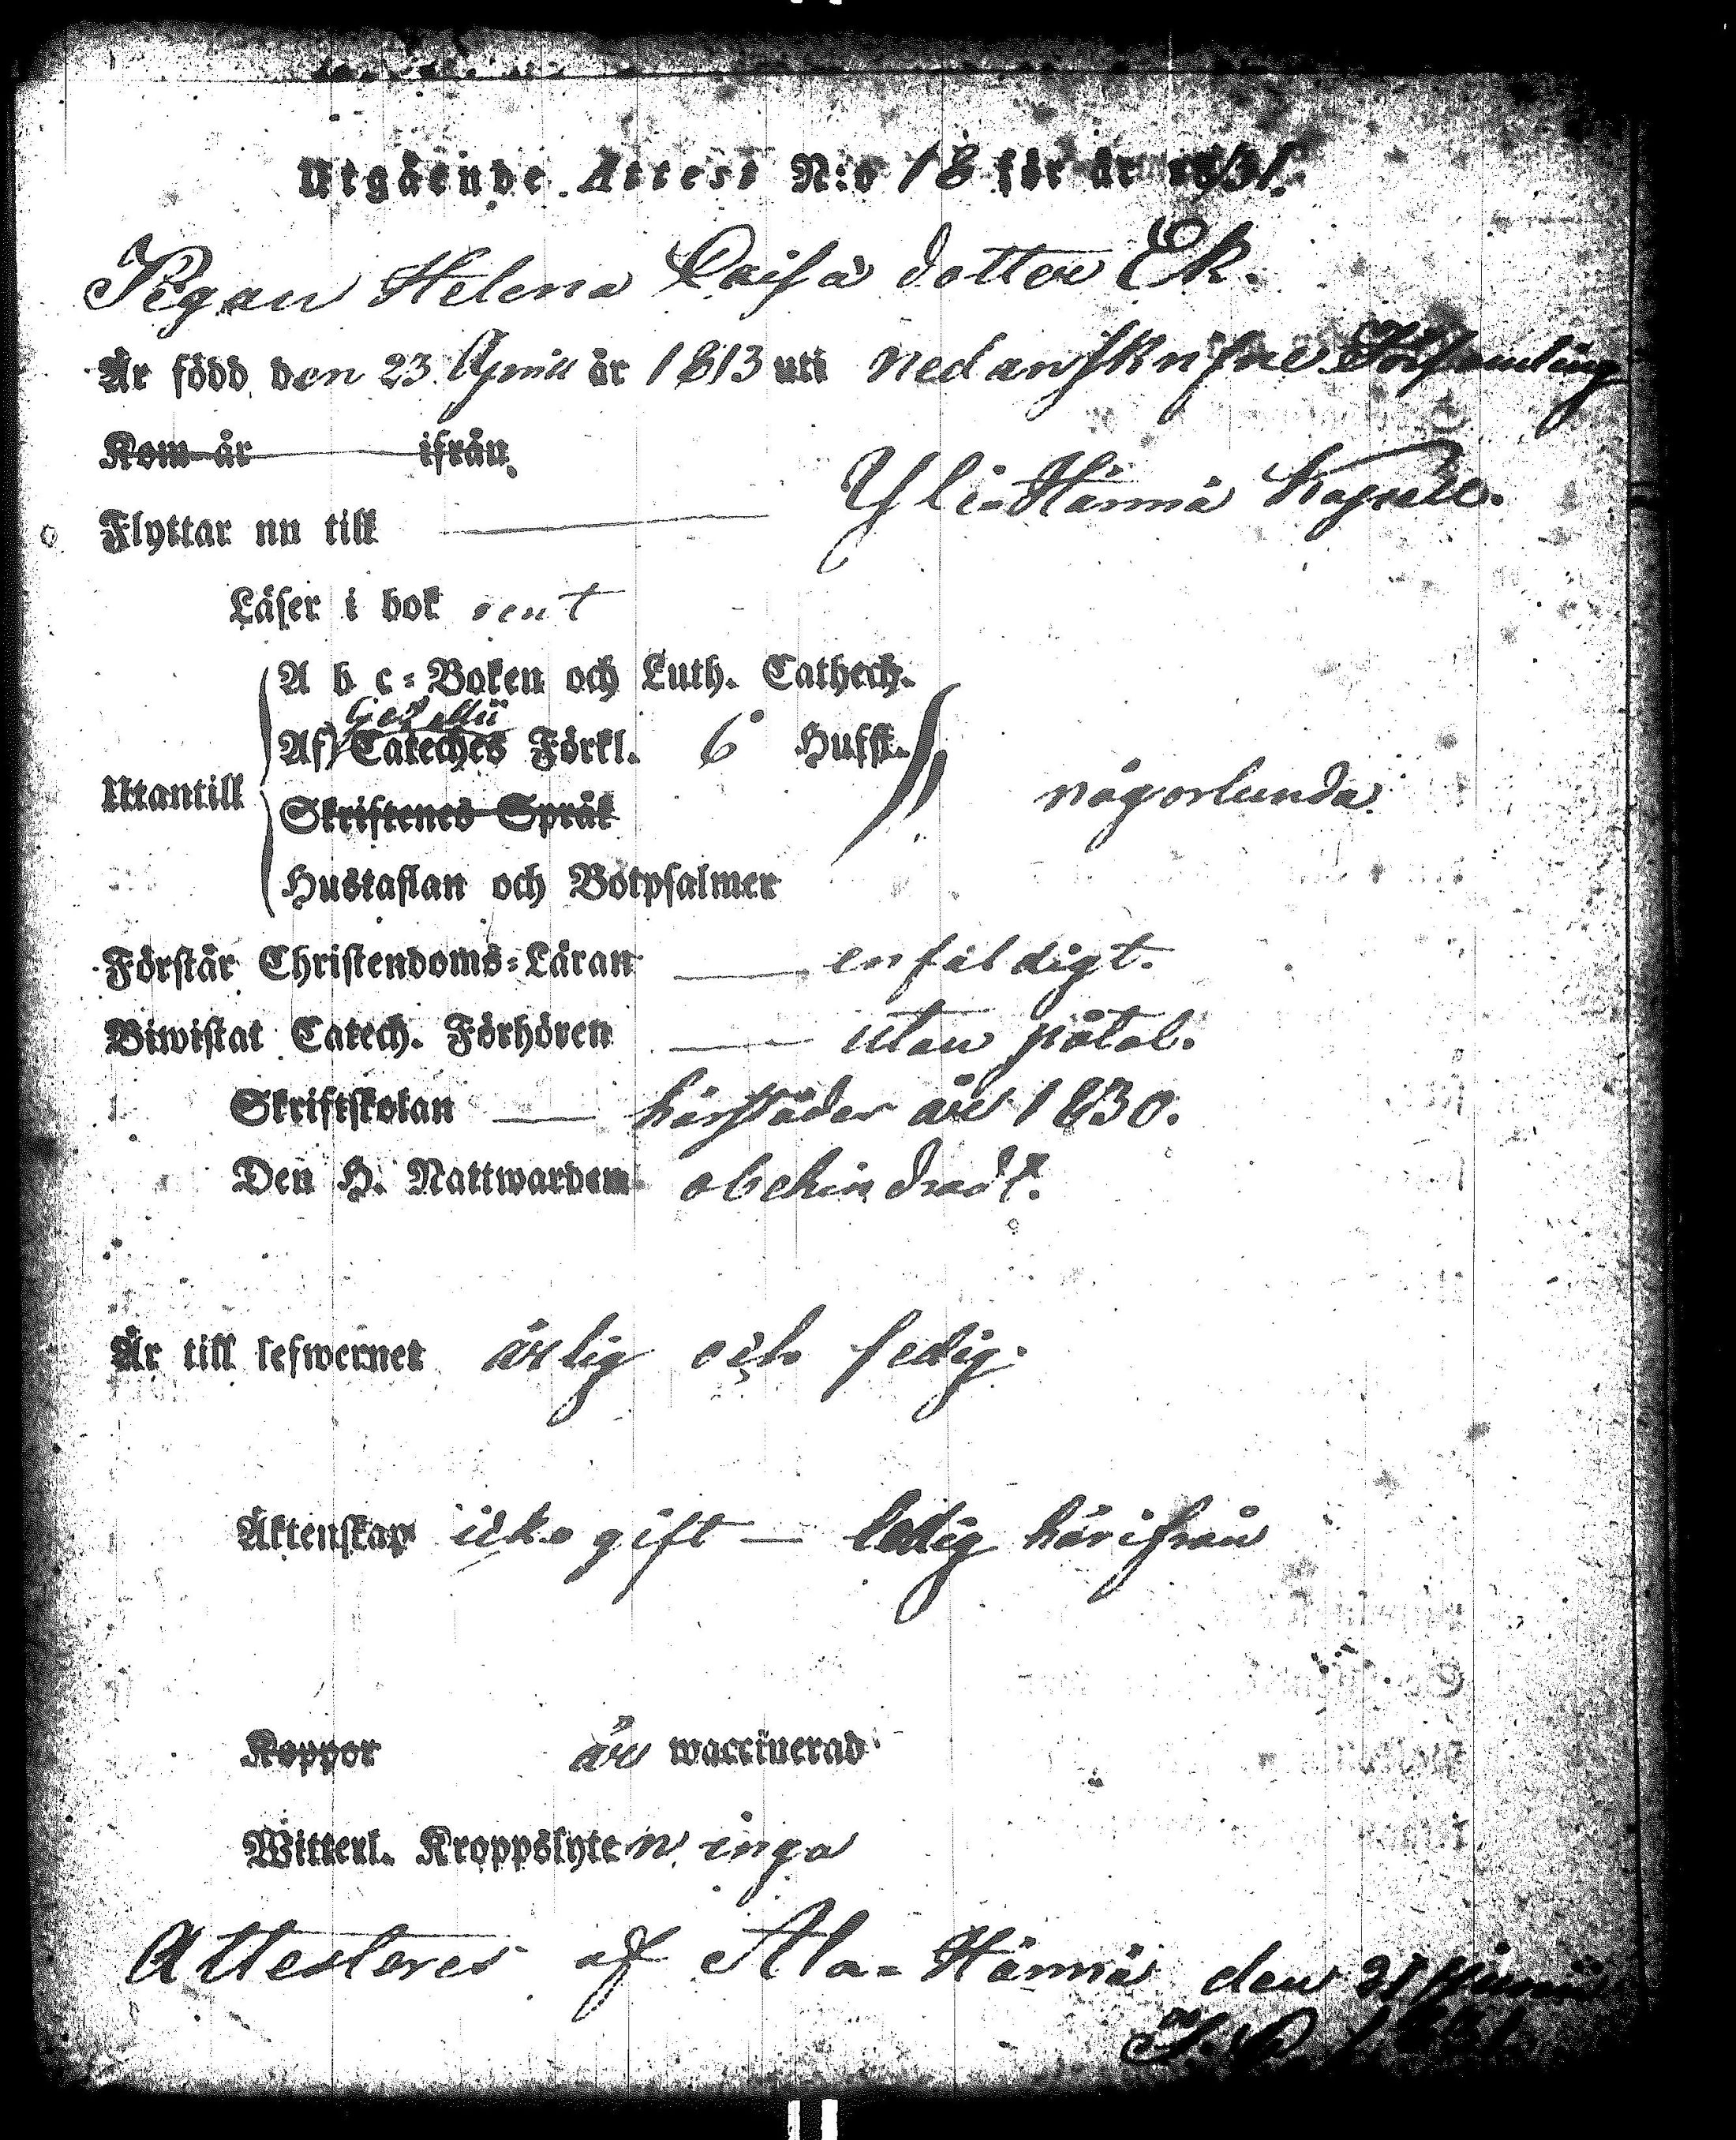 Utgående Attest N:o 18 för år 1831.
Pigan Helena Caisa dotter Ek.
Är född den 23 Aprill år 1813 uti nedanskrifne Församling
Kom år ifrån
Yli-Härmä Kapell.
Flyttar nu till
Läser i bok rent
A b c-Boken och Luth. Cathech.
Af Cateches Förkl. 6 Hufst.
Utantill
någorlunda
Skriftenes Språk
Hustaflan och Botpsalmer
Förstår Christendoms-Läran enfäldigt.
Biwistat Catech. Förhören utan påtal.
Skriftskolan härstädes år 1830.
Den H. Nattwarden obehindradt.
Är till lefwernet ärlig och sedig.
Äktenskap icke gift — ledig härifrån
Koppor är waccinerad
Witterl. Kroppslyten inga
Attesteres af Ala-Härmä den 21